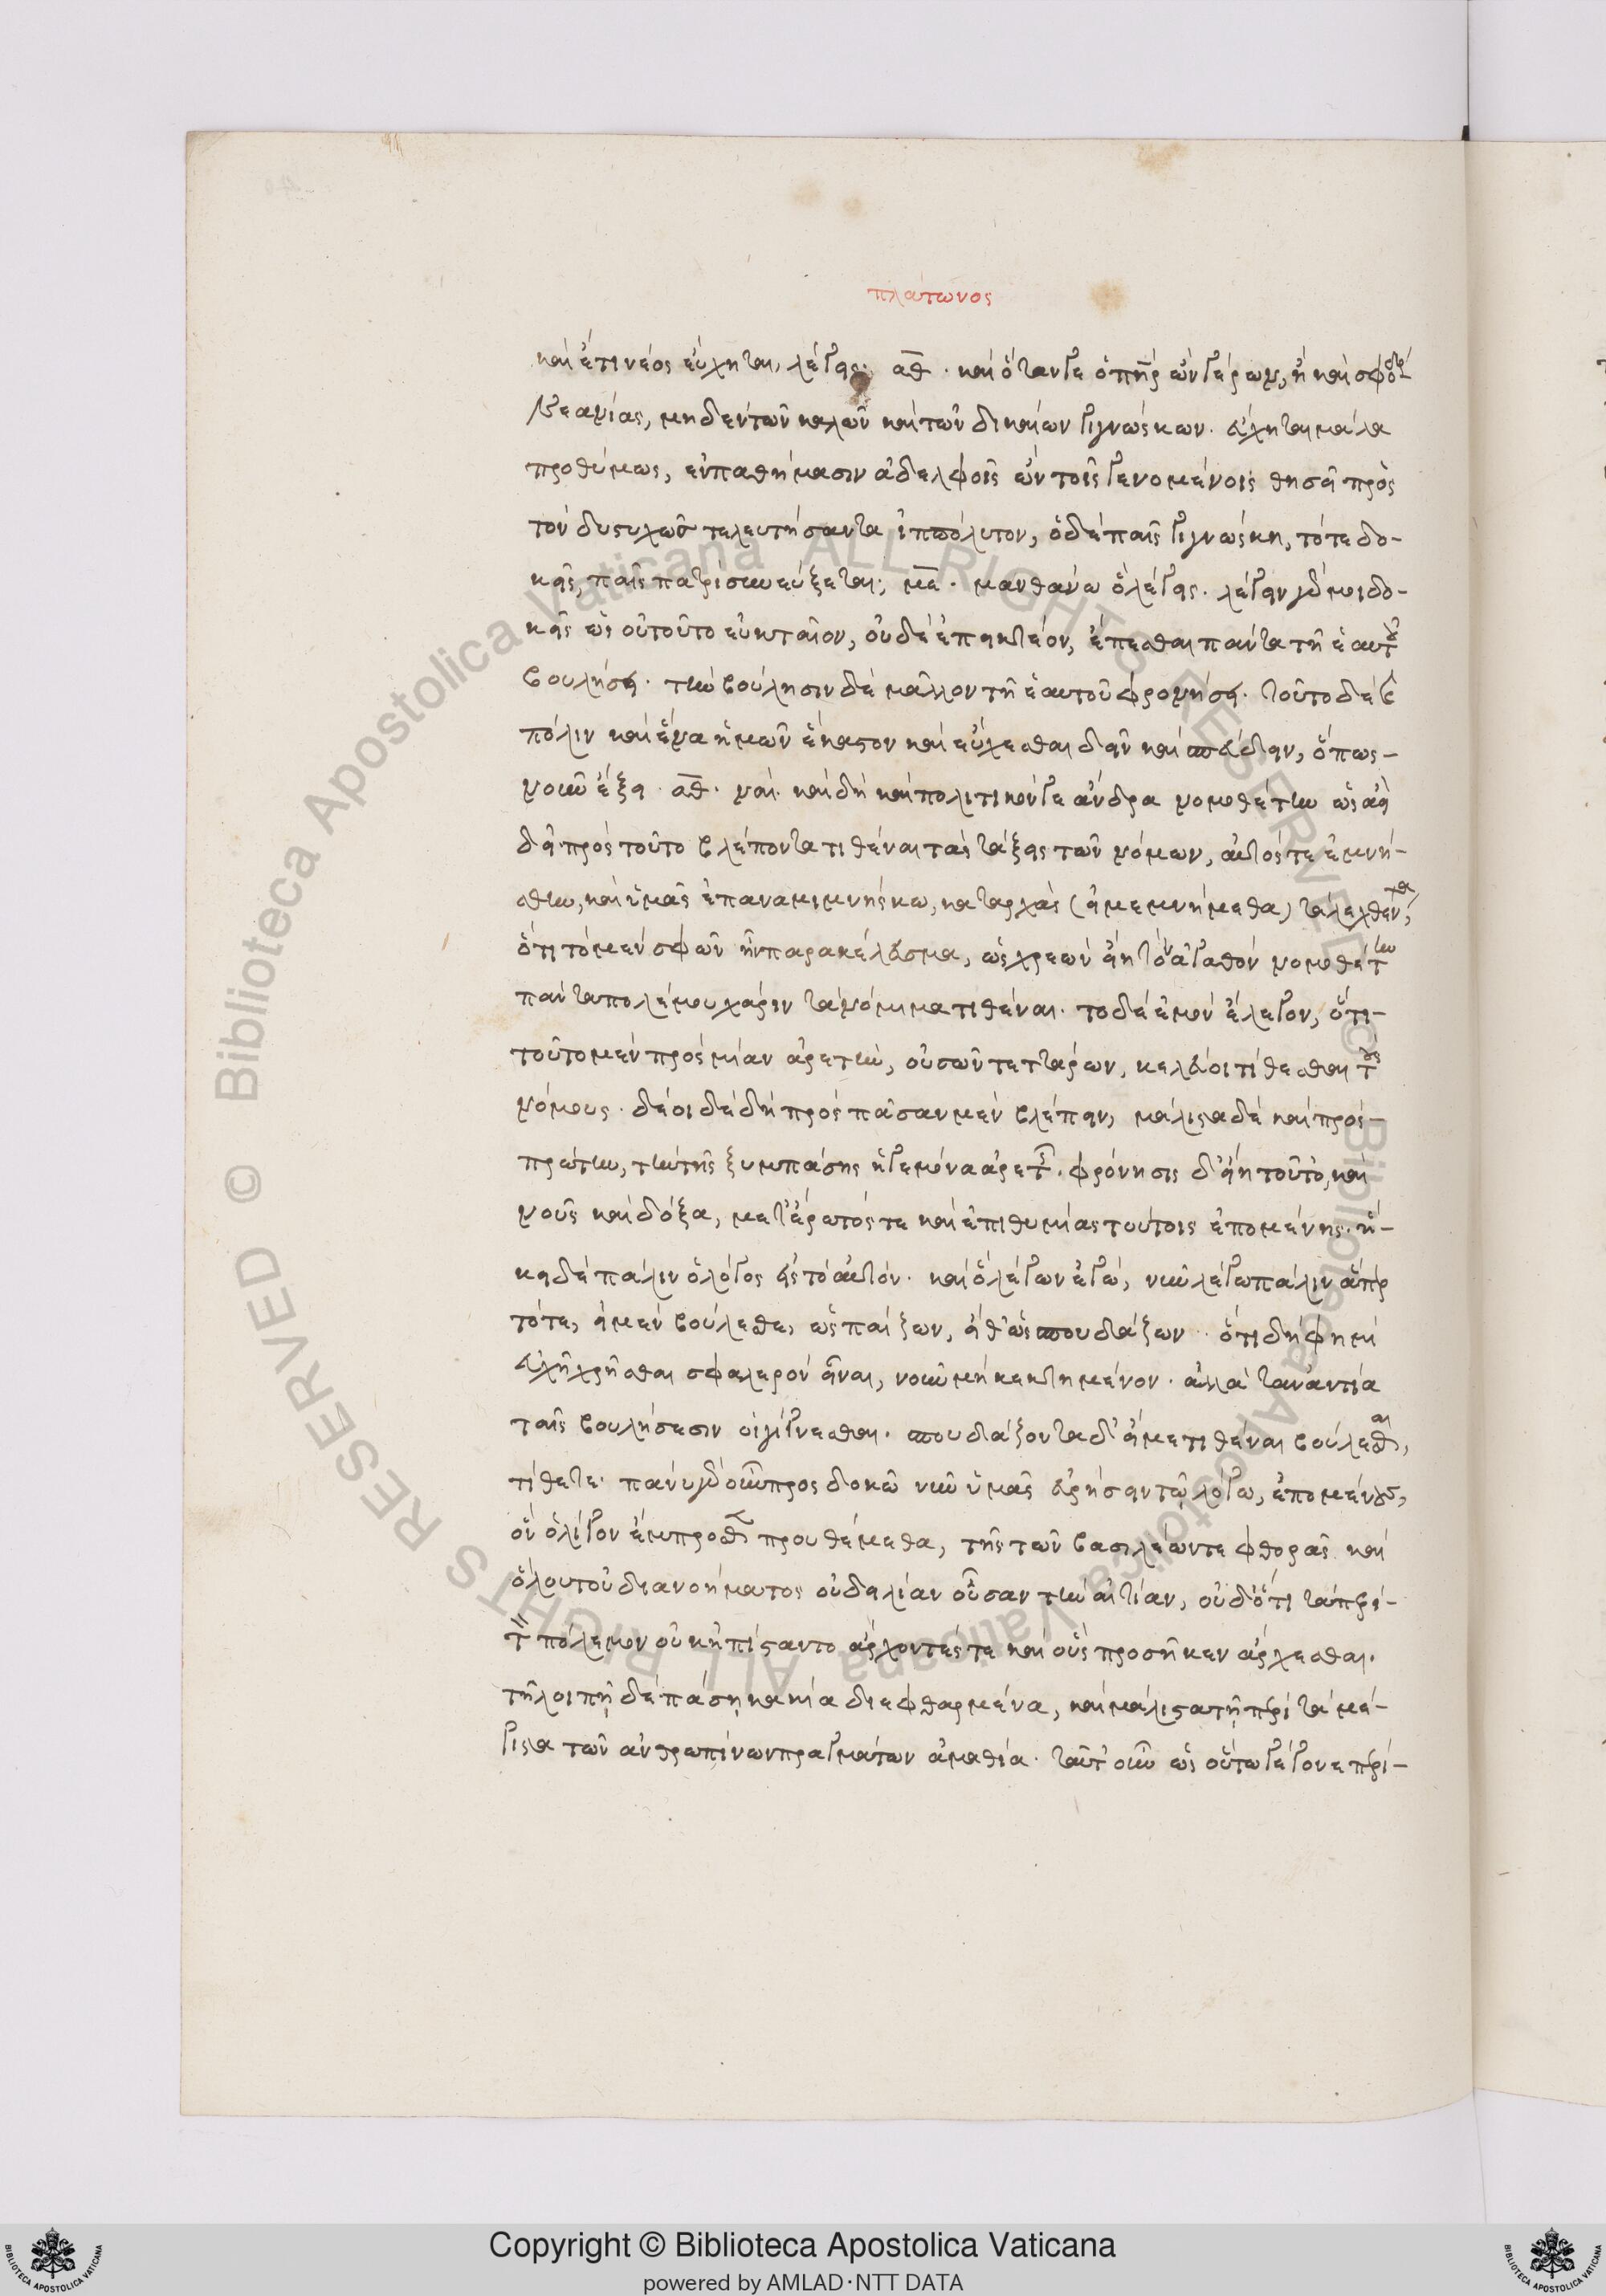 πλάτωνος
καὶ ἔτι νέος εὔχηται, λέγεις; αθ. καὶ ὅταν γε ὁ πηρ ὢν γέρων, ἢ καὶ σφόδρα
νεανίας, μηδὲν τῶν καλῶν καὶ τῶν δικαίων γιγνώσκων. εὔχηται μάλα
προθύμως, ἐν παθήμασιν ἀδελφοῖς ὢν τοῖς γενομένοις θησεῖ πρὸς
τὸν δυστυχῶς τελευτήσαντα ἱππόλυτον, ὁ δὲ παῖς γιγνώσκη, τότε δο-
κεῖς, παῖς πατρὶ συνεύξεται; με. μανθάνω ὃ λέγεις. λέγειν γάρ μοι δο-
κεῖς ὡς οὐ τοῦτο εὐκταῖον, οὐδὲ ἐπεικτέον, ἕπεσθαι πάντα τῆ ἑαυτοῦ
βουλήσει. τὴν βούλησιν δὲ μᾶλλον τῆ ἑαυτοῦ φρονήσει. τοῦτο δὲ καὶ
πόλιν καὶ ἕνα ἡμῶν ἕκαστον καὶ εὔχεσθαι δεῖν καὶ σπεύδειν, ὅπως-
νοῦν ἕξει. αθ. ναί. καὶ δὴ καὶ πολιτικόν γε ἄνδρα νομοθέτην ὡς ἀεὶ
δεῖ πρὸς τοῦτο βλέποντα τιθέναι τὰς τάξεις τῶν νόμων, αὐτός τε ἐμνή-
σθην, καὶ ὑμᾶς ἐπαναμιμνήσκω, καταρχὰς (εἰ μεμνήμεθα) τὰ λεχθέντα,
ὅτι τὸ μὲν σφῶν ἦν παρακέλευσμα, ὡς χρεὼν εἴη τὸν ἀγαθὸν νομοθέτην
πάντα πολέμου χάριν τὰ νόμιμα τιθέναι. τὸ δὲ ἐμὸν ἔλεγον, ὅτι-
τοῦτο μὲν πρὸς μίαν ἀρετὴν, οὐσῶν τεττάρων, κελεύοι τίθεσθαι τοὺς
νόμους. δέοι δὲ δὴ πρὸς πᾶσαν μὲν βλέπειν, μάλιστα δὲ καὶ πρὸς-
πρώτην, τὴν τῆς ξυμπάσης ἡγεμόνα ἀρετῆς. φρόνησις δ' εἴη τοῦτο, καὶ
νοῦς καὶ δόξα, μετ' ἔρωτός τε καὶ ἐπιθυμίας τούτοις ἑπομένης. ἥ-
κει δὲ πάλιν ὁ λόγος εἰς τὸ αὐτόν. καὶ ὁ λέγων ἐγώ, νῦν λέγω πάλιν ἅπερ
τότε, εἰ μὲν βούλεσθε, ὡς παίζων, εἴθ' ὡς σπουδάζων. ὅτι δὴ φημὶ
εὐχῆ χρῆσθαι σφαλερὸν εἶναι, νοῦν μὴ κεκτημένον. ἀλλὰ τἀναντία
ταῖς βουλήσεσιν οἱ γίγνεσθαι. σπουδάζοντα δ' εἴ με τιθέναι βούλεσθαι,
τίθετε· πάνυ γὰρ οὖν προσδοκῶ νῦν ὑμᾶς εὑρήσειν τῷ λόγω, ἑπομένους,
ὃν ὀλίγον ἔμπροσθεν προυθέμεθα, τῆς τῶν βασιλέων τε φθορᾶς καὶ
ὅλου τοῦ διανοήματος οὐ δειλίαν οὖσαν τὴν αἰτίαν, οὐδ' ὅτι τὰ περὶ-
τὸν πόλεμον οὐκ ἠπίσταντο ἄρχοντές τε καὶ οὓς προσῆκεν ἄρχεσθαι.
τῆ λοιπῇ δὲ πάσῃ κακία διεφθαρμένα, καὶ μάλιστα τῇ περὶ τὰ μέ-
γιστα τῶν ἀνθρωπίνων πραγμάτων ἀμαθία. ταῦτ' οὖν ὡς οὕτω γέγονε περὶ-
Copyright © Biblioteca Apostolica Vaticana
powered by AMLAD·NTT DATA